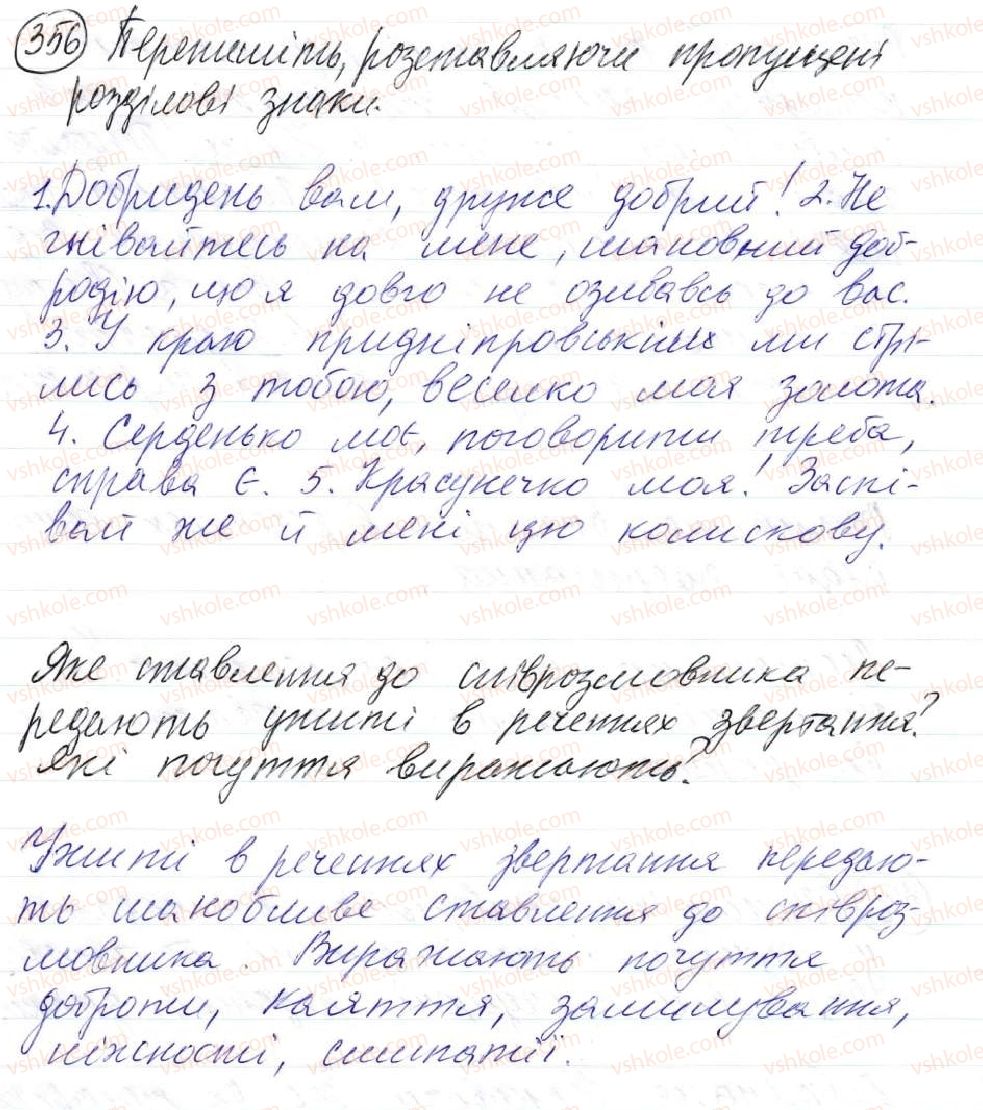 356 Перепишіть, розставляючи пропущені
розділові знаки.
1. Добридень вам, друже добрий! 2. Не
гнівайтесь на мене, шановний доб-
родію, що я довго не озивавсь до вас.
3. У краю придніпровськім ми стрі-
лись з тобою, веселко моя золота.
4. Серденько моє, поговорити треба,
справа є. 5. Красунечко моя! Заспі-
вай же й мені цю колискову.
Яке ставлення до співрозмовника пе-
редають ужиті в реченнях звертання?
Які почуття виражають?
Ужиті в реченнях звертання передаю-
ть шанобливе ставлення до співроз-
мовника. Виражають почуття
доброти, каяття, замилування,
ніжності, симпатії.